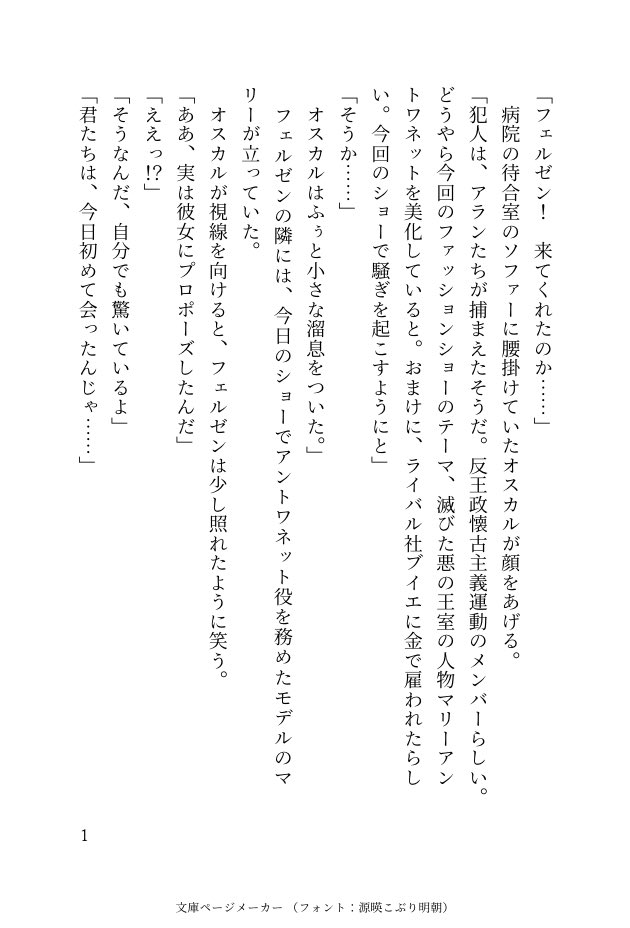 「フェルゼン！　来てくれたのか……」
　病院の待合室のソファーに腰掛けていたオスカルが顔をあげる。
「犯人は、アランたちが捕まえたそうだ。反王政懐古主義運動のメンバーらしい。
どうやら今回のファッションショーのテーマ、滅びた悪の王室の人物マリーアン
トワネットを美化していると。おまけに、ライバル社ブイエに金で雇われたらし
い。今回のショーで騒ぎを起こすようにと」
「そうか……」
　オスカルはふぅと小さな溜息をついた。」
　フェルゼンの隣には、今日のショーでアントワネット役を務めたモデルのマ
リーが立っていた。
　オスカルが視線を向けると、フェルゼンは少し照れたように笑う。
「ああ、実は彼女にプロポーズしたんだ」
「ええっ!?」
「そうなんだ、自分でも驚いているよ」
「君たちは、今日初めて会ったんじゃ……」
1
文庫ページメーカー （フォント：源暎こぶり明朝）